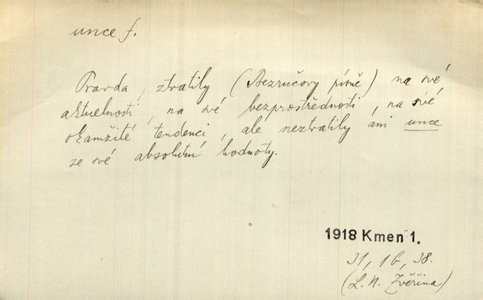 unce f.
Pravda, ztratily (Bezručovy písně) na své
aktuelnosti, na své bezprostřednosti, na své
okamžité tendenci, ale neztratily ani unce
ze své absolutní hodnoty.
1918 Kmen 1.
31, 1b, 38.
(L. N. Zvěřina)